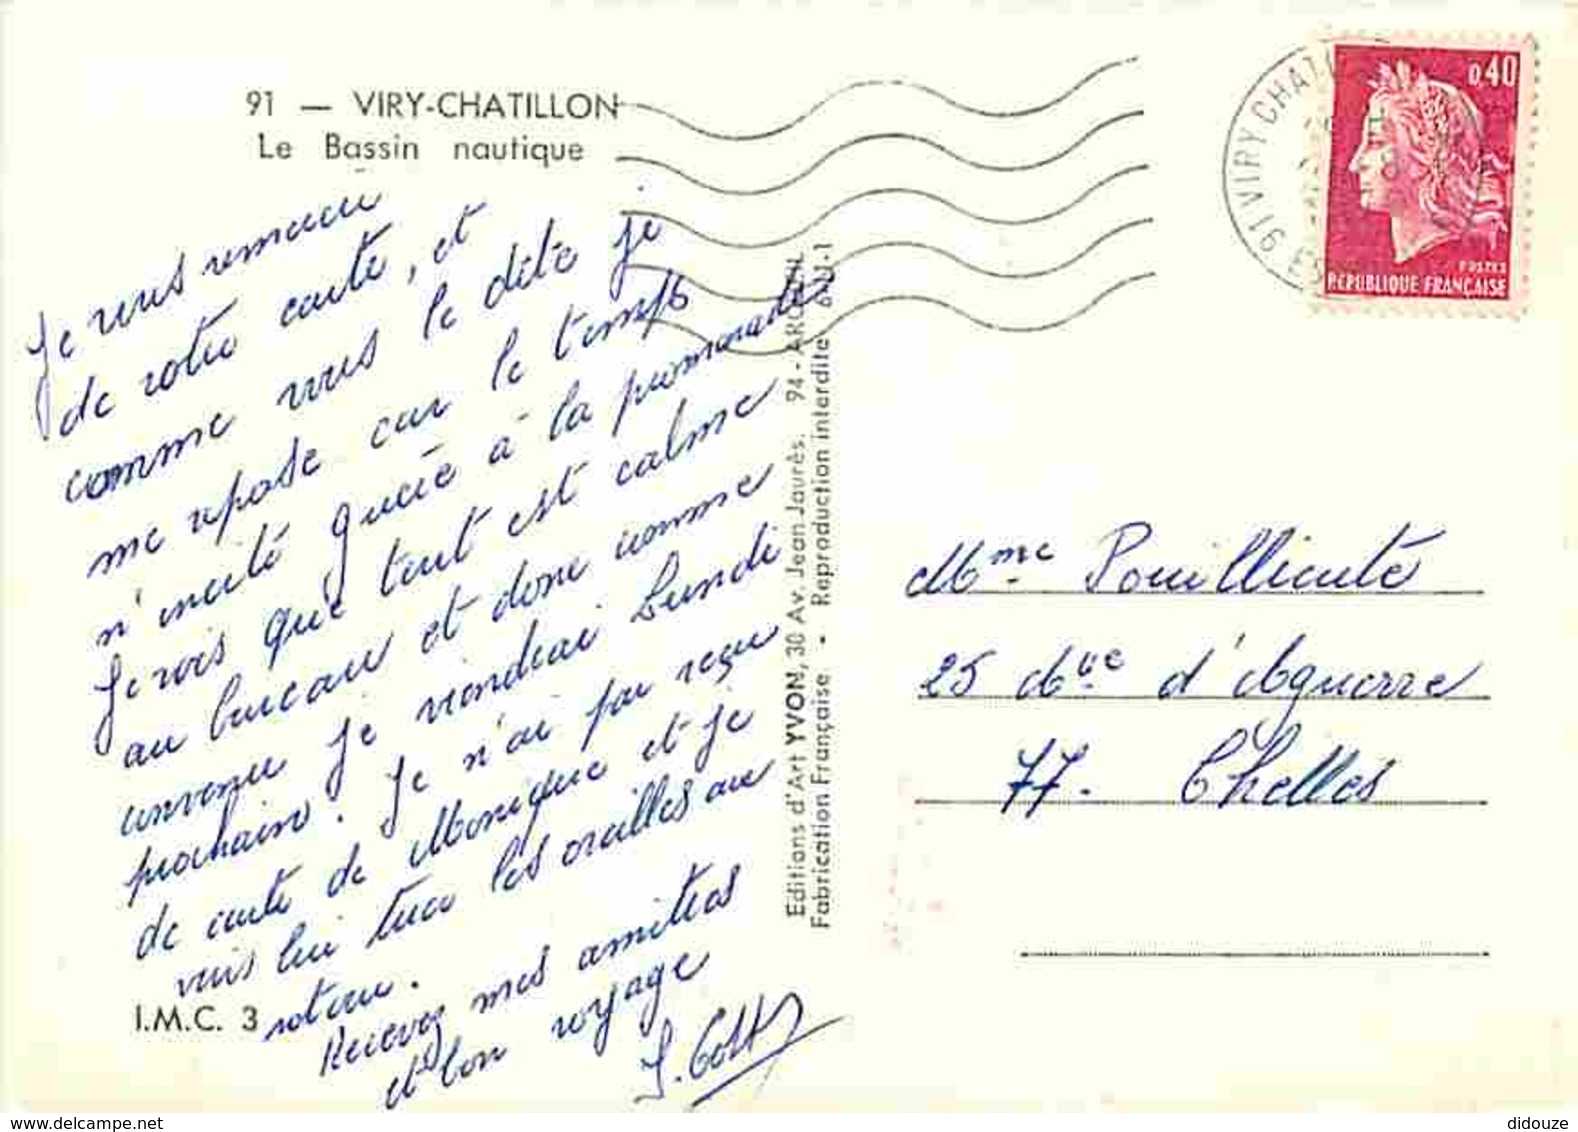 91 — VIRY-CHATILLON
Le Bassin nautique
Je vous remercie
de votre carte, et
comme vous le dite je
me repose car le temps
n'incite guère à la promenade
Je vois que tout est calme
au bureau et donc comme
convenu je viendrai Lundi
prochain. Je n'ai pas reçu
de carte de Monique et je
vais lui tirer les oreilles au
retour.
Recevez mes amitiés
et bon voyage
I.M.C. 3
Editions d'Art YVON, 30 Av. Jean Jaurès. 94 - ARCUEIL
Fabrication Française - Reproduction interdite
91 VIRY CHATI
0,40
POSTES
REPUBLIQUE FRANÇAISE
Mme
25 Ave d'Aguerre
77. Chelles
didouze